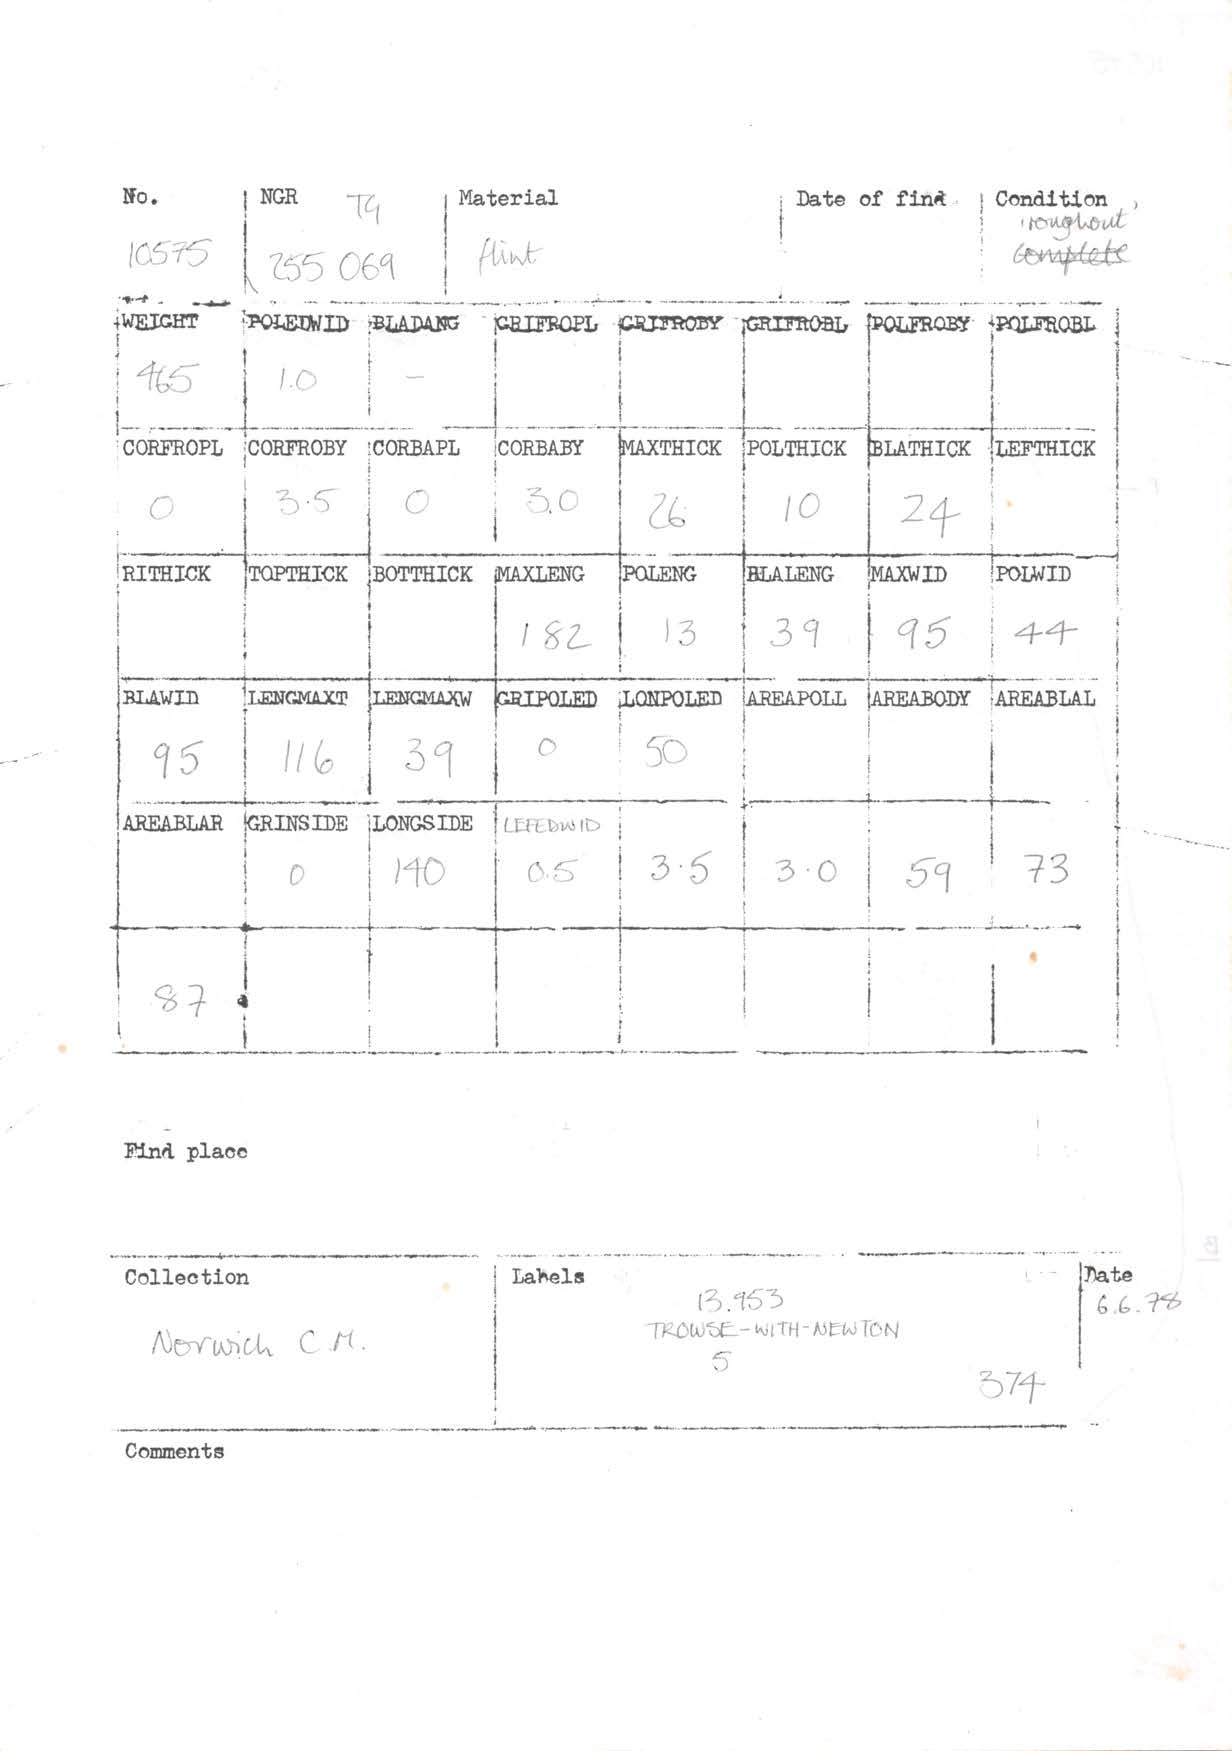 No. NGR TG Material Date of find Condition
roughout
10575 255 069 flint complete
WEIGHT POLEDWID BLADANG GRIFROPL GRIFROBY GRIFROBL POLFROBY POLFROBL
465 1.0 -
CORFROPL CORFROBY CORBAPL CORBABY MAXTHICK POLTHICK BLATHICK LEFTHICK
0 3.5 0 3.0 26 10 24
RITHICK TOPTHICK BOTTHICK MAXLENG POLENG BLALENG MAXWID POLWID
182 13 39 95 44
BLAWID LENGMAXT LENGMAXW GRIPOLED LONPOLED AREAPOLL AREABODY AREABLAL
95 116 39 0 50
AREABLAR GRINSIDE LONGSIDE LEFEDWID
0 140 0.5 3.5 3.0 59 73
87
Find place
Collection Labels Date
13.953 6.6.78
TROWSE-WITH-NEWTON
Norwich C.M. 5
374
Comments